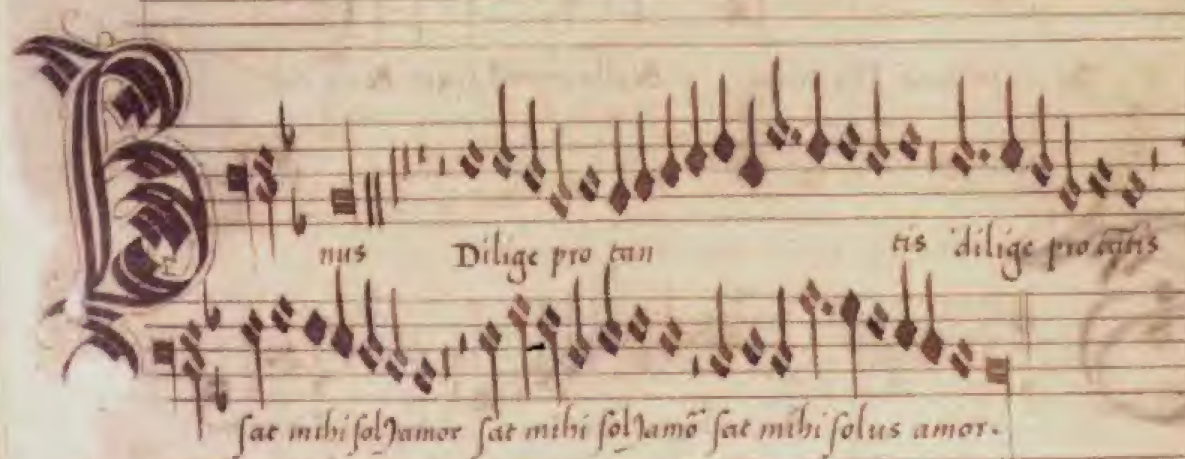 B
nus Dilige pro tan tis dilige pro tātis
ſat mihi ſolꝰ amor ſat mihi ſolꝰ amō ſat mihi ſolus amor.